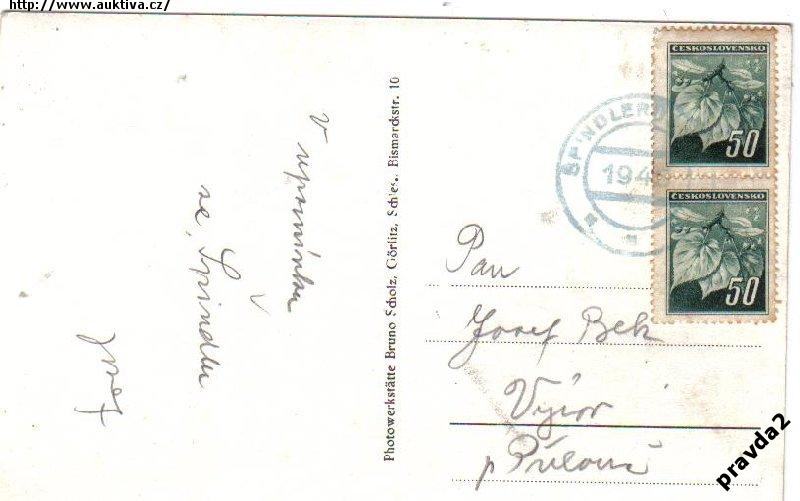 http://www.auktiva.cz/
V upomínku
ze Špindlu
Josef
Photowerkstätte Bruno Scholz, Görlitz, Schles., Bismarckstr. 10
ČESKOSLOVENSKO
50
ČESKOSLOVENSKO
50
Pan
Josef Bek
Výrov
p
pravda2